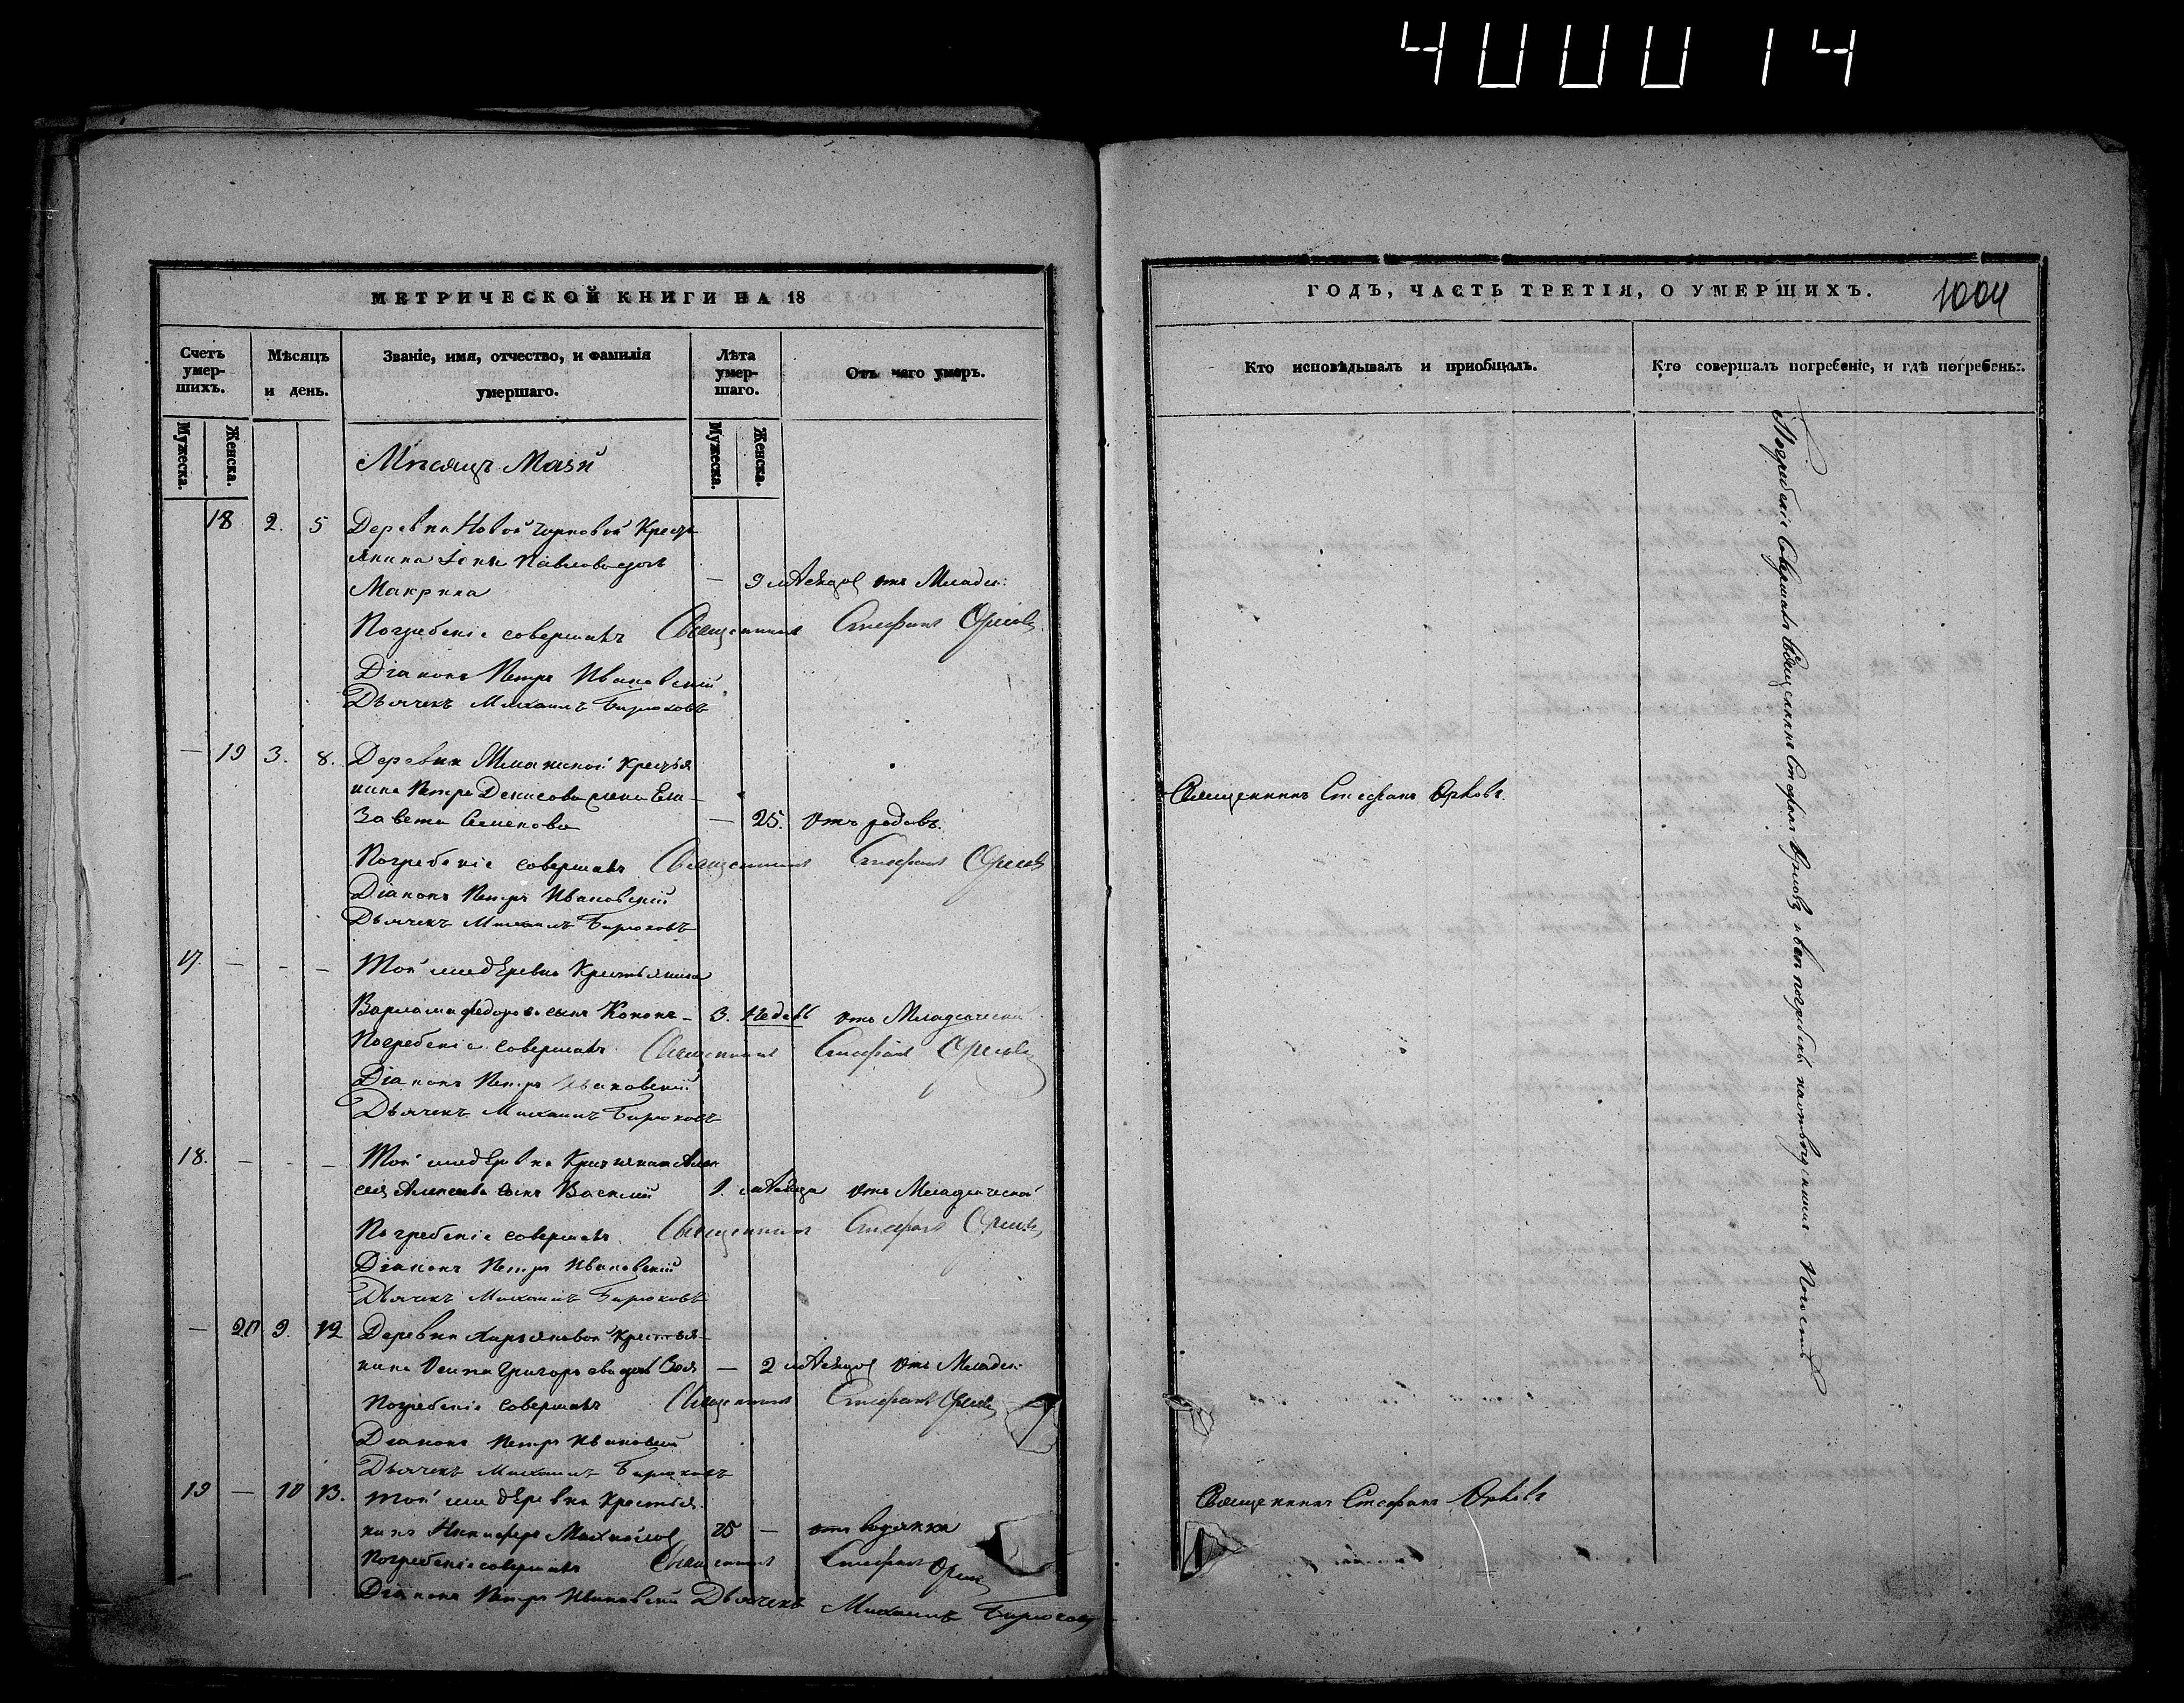 400014
МЕТРИЧЕСКОЙ КНИГИ НА 18
Счетъ умер-шихъ.
Мѣсяцъ и день.
Званіе, имя, отчество, и фамилія умершаго.
Лѣта умер-шаго.
Отъ чего умеръ.
Мужеска.
Женска.
Мужеска.
Женска.
Мѣсяцъ Маій
18 2. 5 Деревни Новой
янина Павлова дочь
Макрина — 9 мѣсяцов отъ Младен:
Погребеніе совершалъ Священникъ Стефанъ Орловъ
Діаконъ Петръ Ивановскій
Дьячекъ Михаилъ Бирюковъ
— 19 3. 8. Деревни Крестья
нина Петра Денисова жена Ели-
завета Семенова — 25. отъ родовъ.
Погребеніе совершалъ Священникъ Стефанъ Орловъ
Діаконъ Петръ Ивановскій
Дьячекъ Михаилъ Бирюковъ
17. — - — Той же деревни Крестьянина
Варлама Федорова сынъ Кононъ — 3. недель отъ Младенческой
Погребеніе совершалъ Священникъ Стефанъ Орловъ
Діаконъ Петръ Ивановскій
Дьячекъ Михаилъ Бирюковъ
18. — - — Той же деревни
сынъ Василій 1. мѣсяца отъ Младенческой
Погребеніе совершалъ Священникъ Стефанъ Орловъ
Діаконъ Петръ Ивановскій
Дьячекъ Михаилъ Бирюковъ
— 20 9. 12 Деревни Крестья-
нина Осипа Григорьева дочь — 2 мѣсяцов отъ Младен:
Погребеніе совершалъ Священникъ Стефанъ Орловъ
Діаконъ Петръ Ивановскій
Дьячекъ Михаилъ Бирюковъ
19 — 10 13. Той же деревни Крестья
нинъ Михайлов — отъ водянки
Погребеніе совершалъ Священникъ Стефанъ Орловъ
Діаконъ Петръ Ивановскій Дьячекъ Михаилъ Бирюковъ
ГОДЪ, ЧАСТЬ ТРЕТІЯ, О УМЕРШИХЪ.
1004
Кто исповѣдывалъ и пріобщалъ.
Кто совершалъ погребеніе, и гдѣ погребены.
Священникъ Стефанъ Орловъ.
Священникъ Стефанъ Орловъ
Погребеніе Совершалъ Священникъ Стефанъ Орловъ и все погребены на отведенномъ Погостѣ